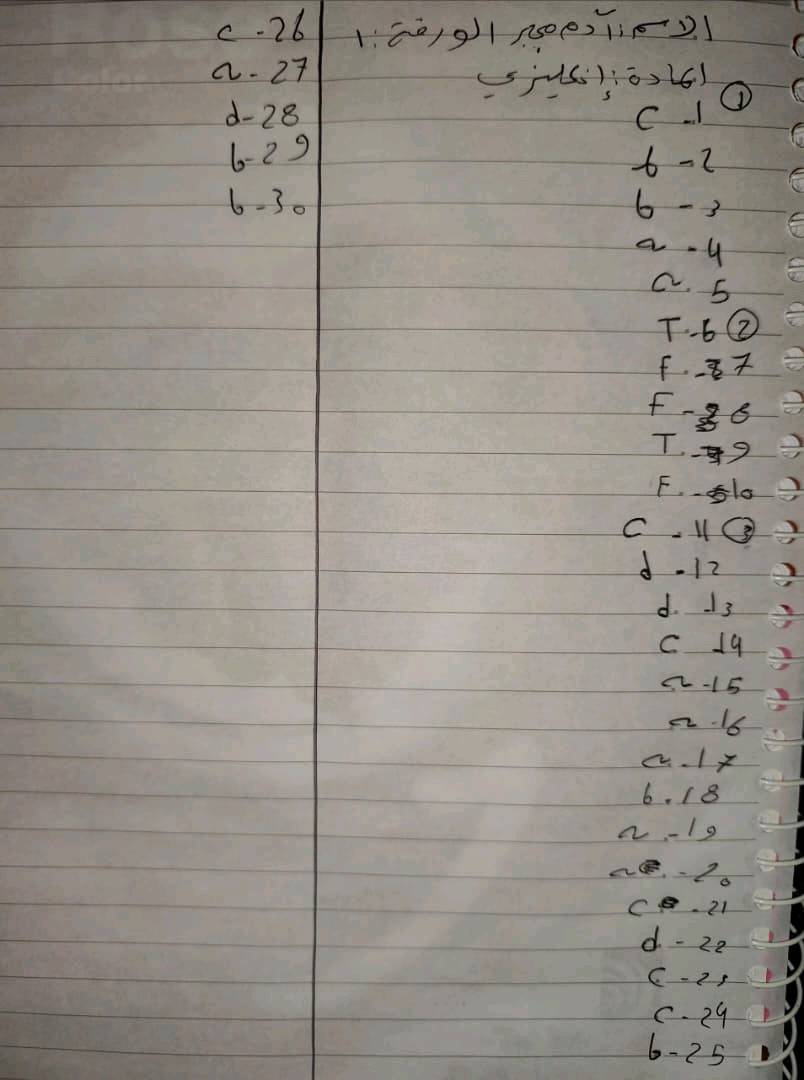 الاسم: آدم مجبر الورقة: ١
المادة: إنكليزي
① 1- c
2- b
3- b
4- a
5- a
② 6- T
7- F
8- F
9- T
10- F
③ 11- c
12- d
13- d
14- c
15- a
16- a
17- a
18- b
19- a
20- a
21- c
22- d
23- c
24- c
25- b
26- c
27- a
28- d
29- b
30- b